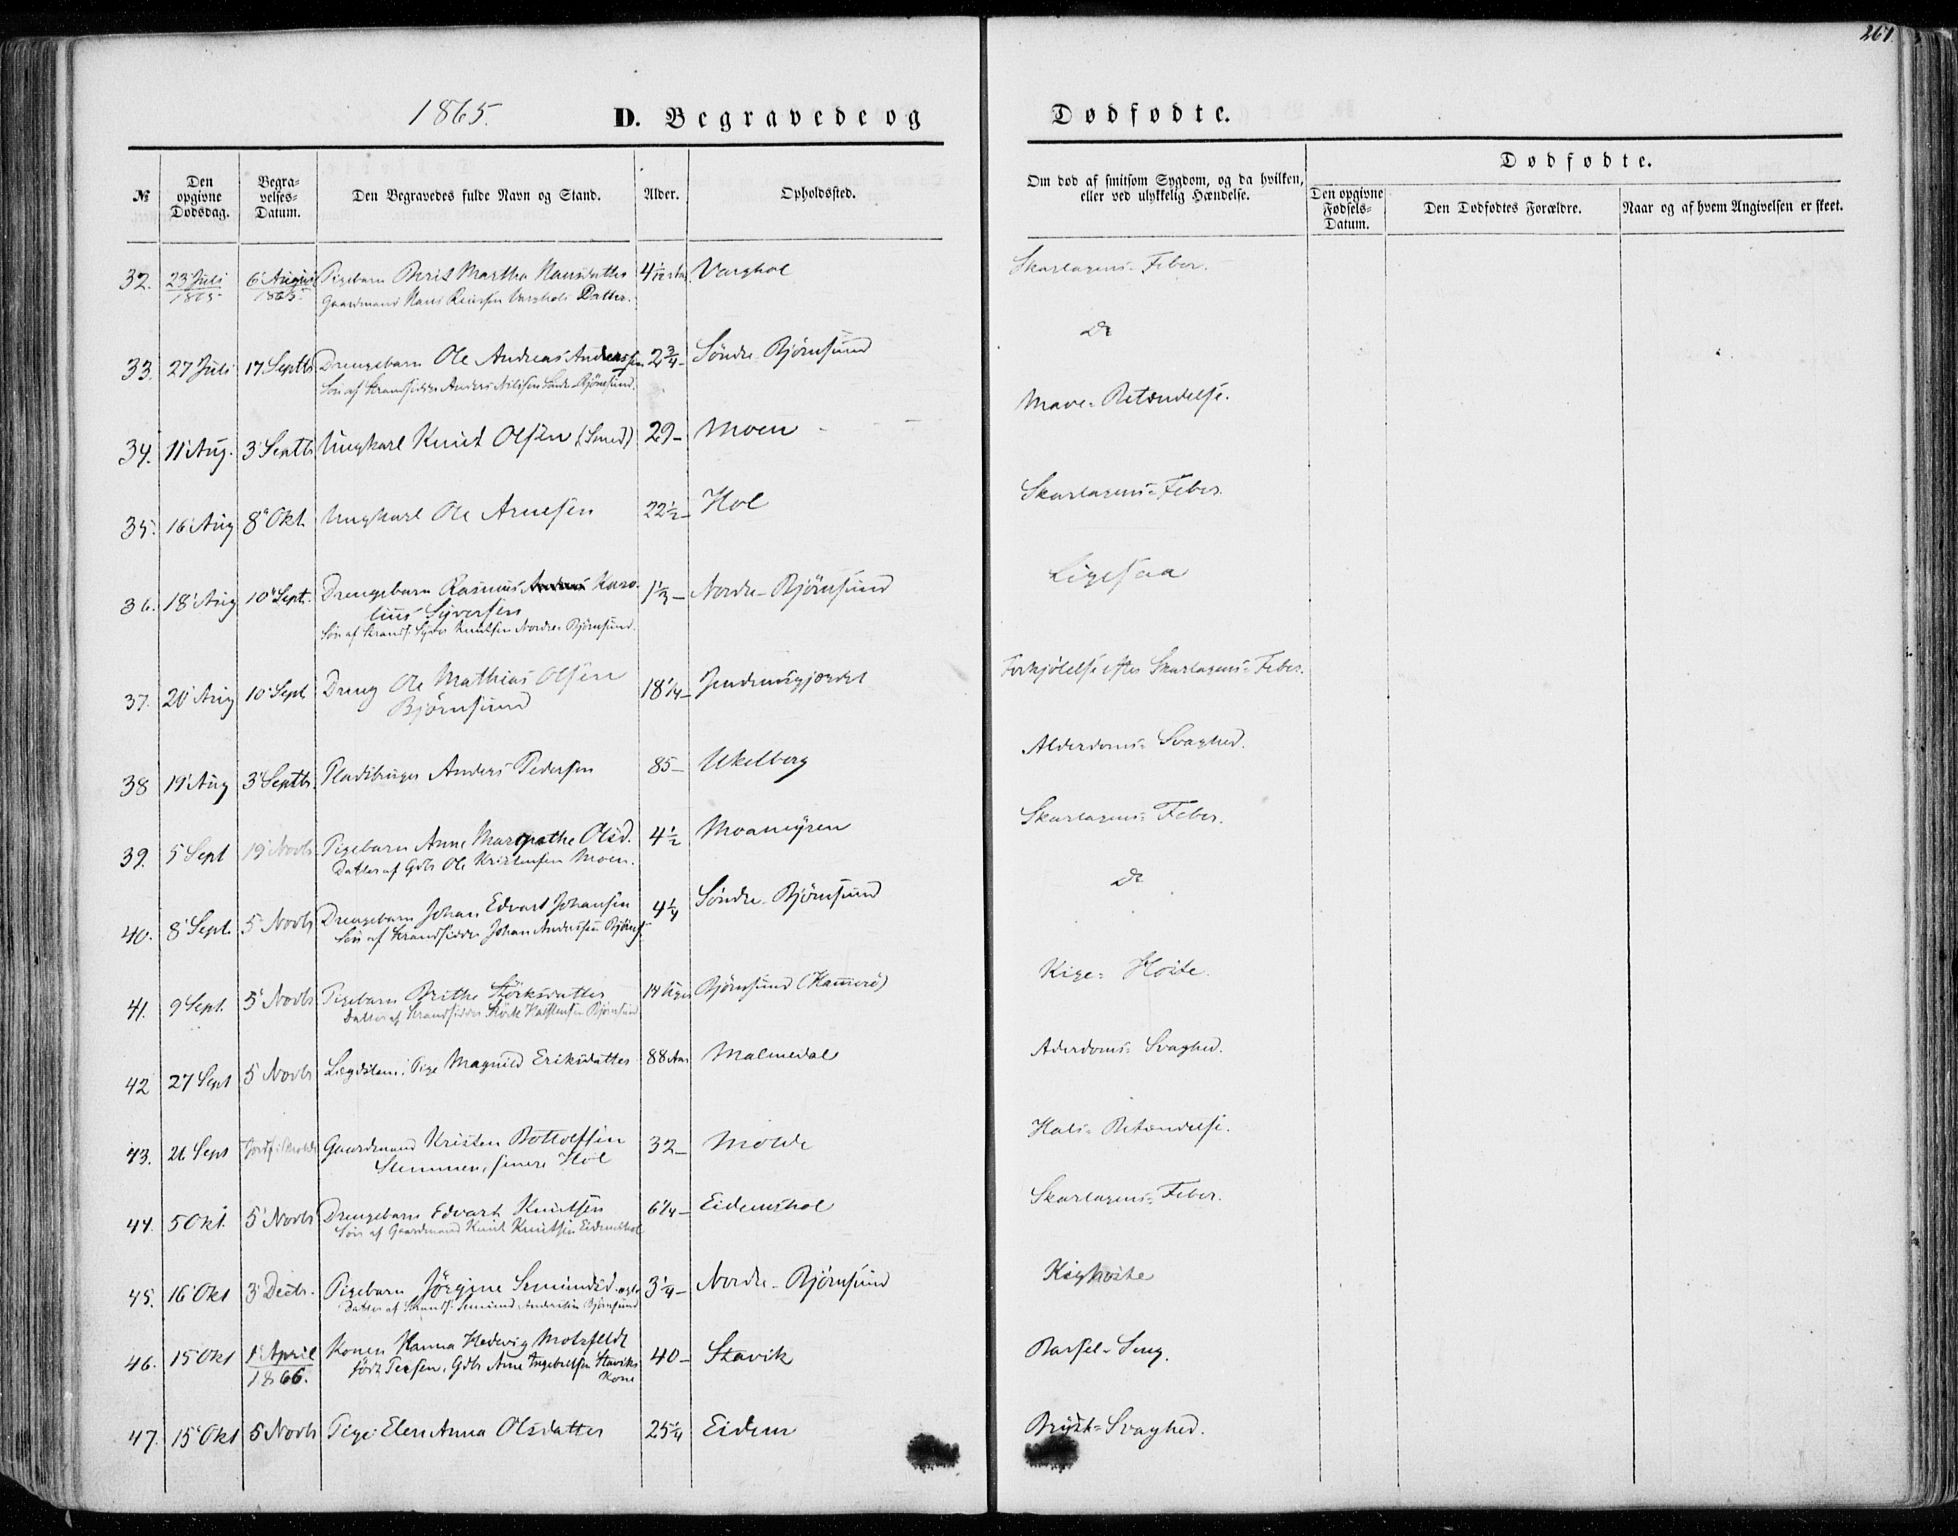 261
1865. D. Begravede og Dødfødte.
№ Den opgivne Dødsdag. Begravelses-Datum. Den Begravedes fulde Navn og Stand. Alder. Opholdssted. Om død af smitsom Sygdom, og da hvilken, eller ved ulykkelig Hændelse. Dødfødte.
Den opgivne Fødsels-Datum. Den Dødfødtes Forældre. Naar og af hvem Angivelsen er skeet.
32. 23 Juli 1865 6 August 1865. Pigebarn Berit Martha Hansdatter 4 1/12 Varghol Skarlagens-Feber.
Gaardmand Hans Varghols Datter.
33. 27 Juli 17 Septb Drengebarn Ole Andreas Anderssen 2 3/4 - Søndre Bjørnsund do
Søn af Strandsidder Anders Nilssen Søndre Bjørnsund.
34. 11 Aug. 3 Septb Ungkarl Knut Olsen (Smed) 29 - Moen Mave-Betændelse.
35. 16 Aug 8 Okt. Ungkarl Ole Arnesen 22 1/2 - Hol Skarlagens-Feber.
36. 18 Aug 10 Sept. Drengebarn Rasmus Karo- 1 1/3 - Nordre-Bjørnsund Ligesaa
lius Syversen
Søn af Strands. Syver Knutsen Nordre Bjørnsund.
37. 20 Aug 10 Sept Dreng Ole Mathias Olsen 18 1/4 - Jendemsgjærdet Forkjølelse efter Skarlagens-Feber.
Bjørnsund
38 19 Aug 3 Septb. Pladsbruger Anders Pedersen 85 - Ukelberg Alderdoms-Svaghed.
39. 5 Sept 19 Novb. Pigebarn Anne Margrethe Olsd. 4 1/2 Moamyren Skarlagens-Feber.
Datter af Gdbr Ole Kristensen Moen.
40. 8 Sept. 5 Novb Drengebarn Johan Edvart Johansen 4 1/4 Søndre-Bjørnsund do
Søn af Strandsidder Johan Anderssen Bjørns.
41. 9 Sept. 5 Novb Pigebarn Brithe Størksdatter 14 Uger Bjørnsund (Hammerø) Kige-Hoste.
Datter af Strandsidder Størk Bjørnsund
42 27 Sept 5 Novb Lægdslem, Pige Magnild Eriksdatter 88 Aar Malmedal Aderdoms-Svaghed.
43. 26 Sept Gaardmand Kristen Bottolfsen 32 - Molde Hals-Betændelse.
Stemmen, senere Hol
44. 5 Okt. 5 Novb Drengebarn Edvart Knutsen 6 1/4 - Eidemshol Skarlagens-Feber.
Søn af Gaardmand Knut Knutsen Eidemshol
45. 16 Okt 3 Decbr. Pigebarn Jørgine Semundsd. 3 1/4 - Nordre-Bjørnsund Kighoste
Datter af Strands. Semund Anderssen Bjørnsund
46. 15 Okt 1 April 1866. Konen Hanna Hedevig Motzfeldt 40 - Stavik Barsel-Seng.
født Gdbr Arne Ingebretsen Staviks
Kone
47. 15 Okt 5 Novb Pige Elen Anna Olsdatter 25 1/4 Eidem Bryst-Svaghed.